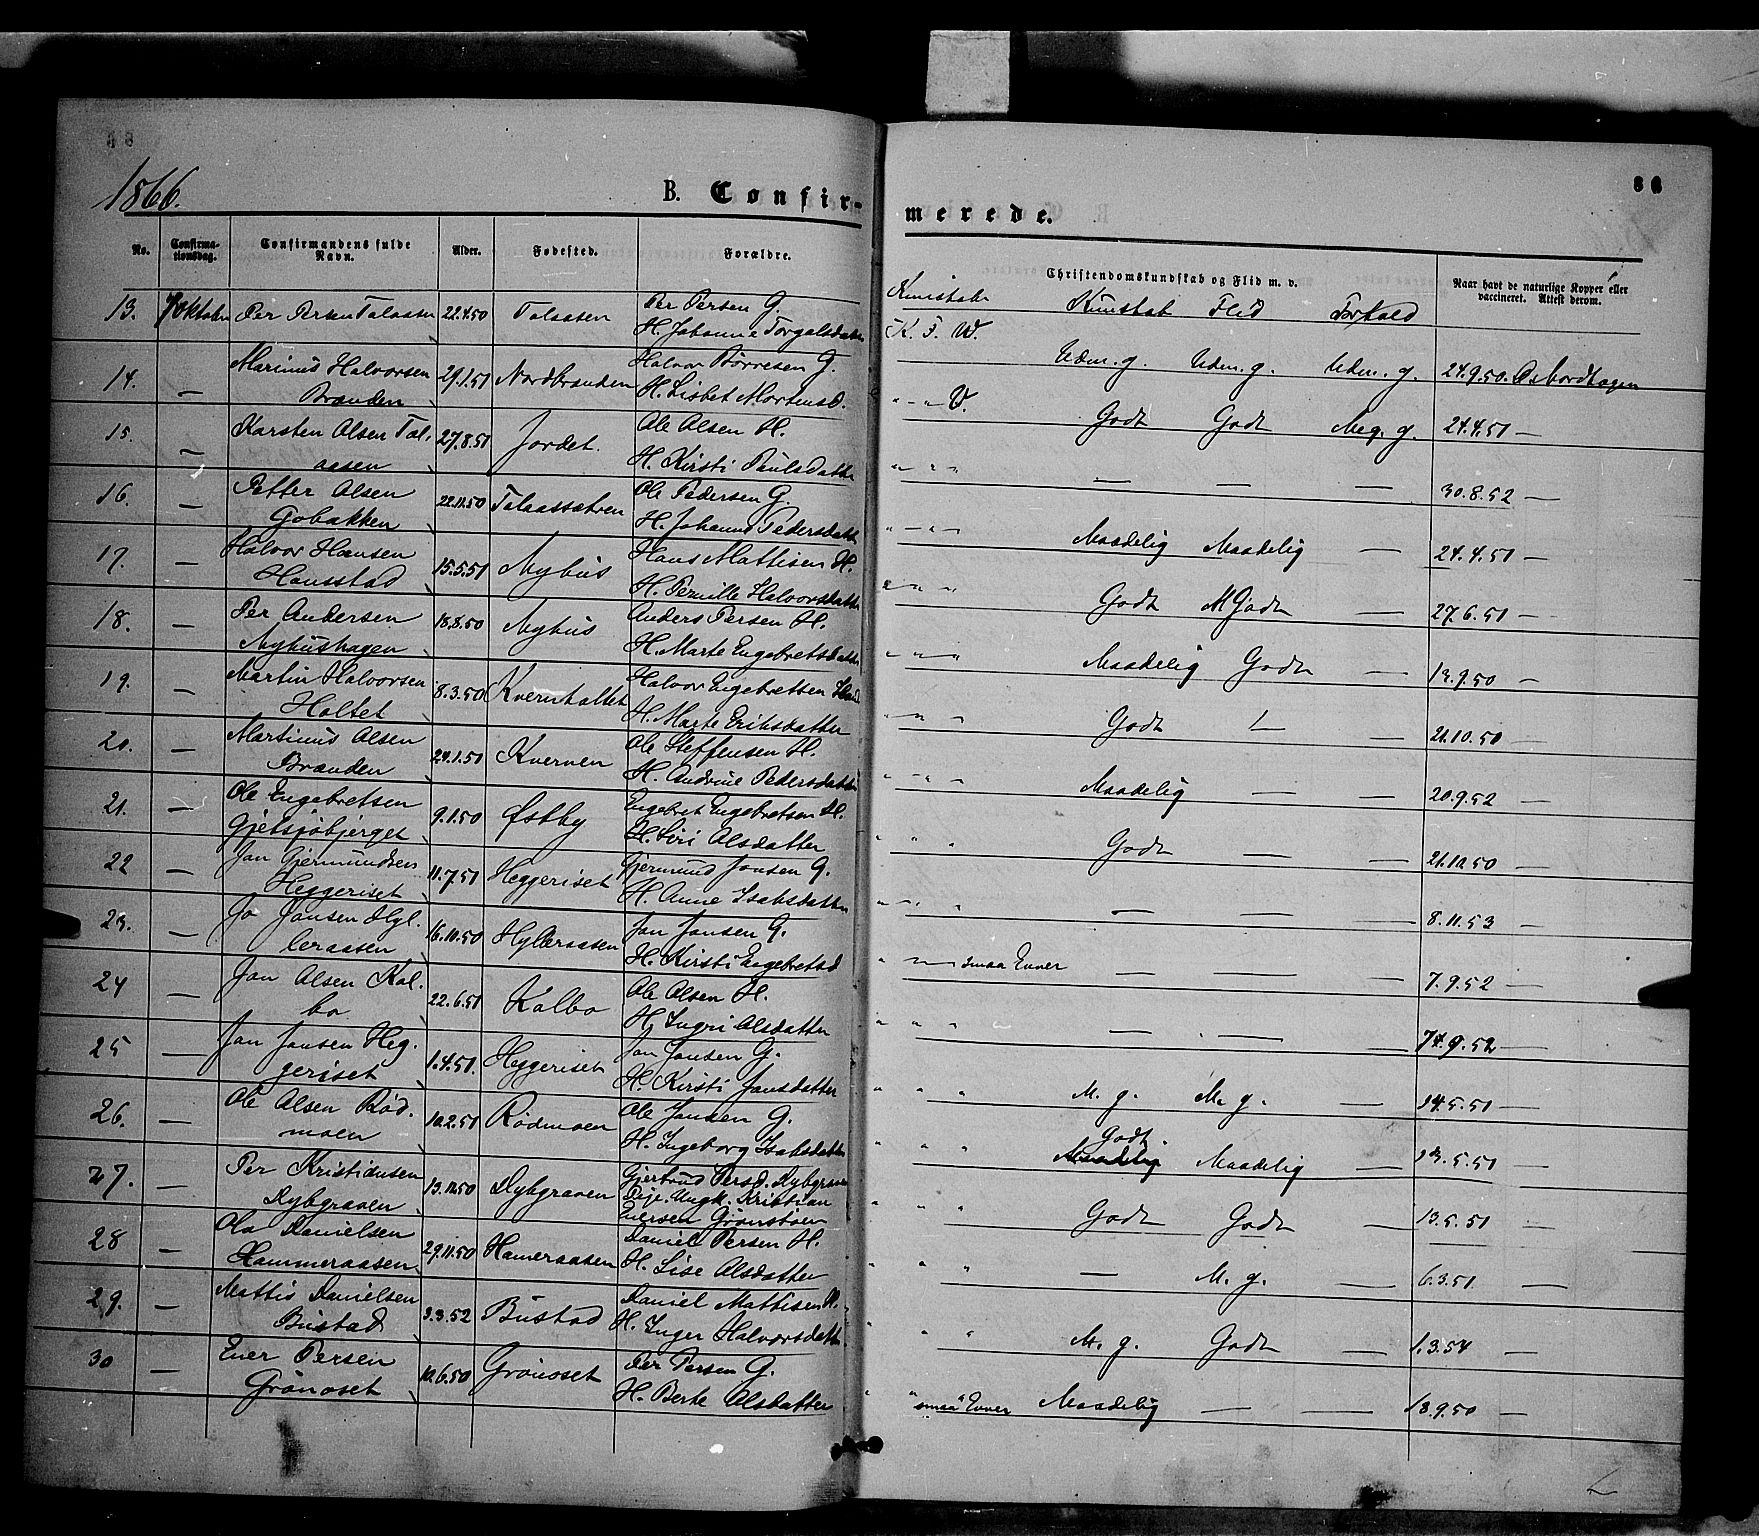 1866.
B. Confir-
merede.
No. Confirma-tionsdag. Confirmandens fulde Navn. Alder. Fødested. Forældre. Christendomskundskab og Flid m. v. Naar havt de naturlige Kopper eller vaccineret. Attest derom.
Kundskab Flid Forhold
13. 7 Oktober Per Persen Talaasen 22.4.50 Talaasen Per Persen G. K. F. V. Udm. g. Udm. g. Udm. g. 24.9.50. Osbordhagen
H. Johanne Torgalsdatter
14. — Marinus Halvorsen 29.1.51 Nordbranden Halvor Børresen G. V. Godt Godt Meg. g. 24.4.51 —
Brænden H. Lisbet Mortensd.
15. — Karsten Olsen Tal- 27.8.51 Jordet. Ole Olsen H. — — — 30.8.52 —
aasen H. Kirsti Paulsdatter
16. — Petter Olsen 22.11.50 Talaassætren Ole Pedersen G. Maadelig Maadelig — 24.4.51 —
Gobakken H. Johanne Pedersdatter
17. — Halvor Hansen 15.5.51 Nyhus Hans Mattisen H. Godt M Godt — 27.6.51 —
Hansstad H. Pernille Halvorsdatter
18. — Per Andersen 18.8.50 Nyhus Anders Persen H. Maadelig Godt — 13.9.50 —
Nyhushagen H. Marte Engebretsdatter
19. — Martin Halvorsen 8.3.50 Kvernholtet Halvor Engebretsen Godt — — 21.10.50 —
Holtet H. Marte Eriksdatter
20. — Martinus Olsen 29.1.51 Kvernen Ole Steffensen H. Maadelig — — 20.9.52 —
Brænden H. Andrine Pedersdatter
21. — Ole Engebretsen 9.1.50 Østby Engebret Engebretsen H. Godt — — 21.10.50 —
Gjetsjøbjerget H. Siri Olsdatter
22 — Jon Gjermundsen 11.7.51 Heggeriset Gjermund Jonsen G. — — — 8.11.53 —
Heggeriset H. Anne Isaksdatter
23. — Jo Jonsen Hyl- 16.10.50 Hylleraasen Jon Jonsen G. smaa Evner — — — 7.9.52 —
leraasen H. Kirsti Engebretsd
24 — Jon Olsen Kol- 22.6.51 Kolbo Ole Olsen H. — — — 9.52 —
bo H. Ingri Olsdatter
25 — Jon Jonsen Heg- 1.4.51. Heggeriset Jon Jonsen G. M. g. M. g. — 14.5.51 —
geriset H. Kirsti Jonsdatter
26. — Ole Olsen Rød- 10.2.51 Rødmoen Ole Jonsen G. Godt Maadelig Maadelig — 13.5.51 —
moen H. Ingeborg Isaksdatter
27. — Per Kristiansen 13.11.50 Dybgraven Gjertrud Persd. Dybgraven Godt Godt — 13.5.51 —
Dybgraven Pige. Ungk. Kristian
Eversen Grønstøen
28 — Ole Danielsen 29.11.50 Hameraasen Daniel Persen H. — M. g. — 6.3.51. —
Hammeraasen H. Lise Olsdatter
29. — Mattis Danielsen 3.3.52 Bustad Daniel Mattisen H. M. g. Godt — 1.3.54 —
Bustad H. Inger Halvorsdatter
30 — Ever Persen 10.6.50 Grønoset Per Persen G. smaa Evner Maadelig — — 18.9.50 —
Grønoset H. Berte Olsdatter